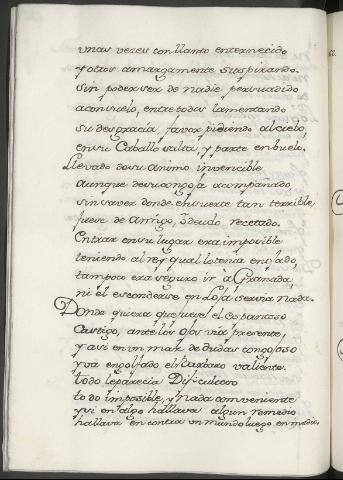 unas vezes con llanto enternecido
y otros amargamente suspirando.
sin poder ser de nadie persuadido
a consuelo, entre todos lamentando
su desgracia, favor pidiendo al cielo,
en su Caballo salta, y parte en buelo.
Llevado de su animo invencible
aunque de su congoja acompañado,
sin saver donde en suerte tan terrible
fuese de Amigo, o deudo recetado.
Entrar en su lugar era imposible
teniendo al rey qual lo tenia enojado,
tampoco era seguro ir a Granada,
ni el esconderse en Loja servia nada.
Donde quiera que fuese el espantoso
Castigo, ante los ojos via presente,
y asi en un mar de dudas congojoso
y va engolfado el Barbaro valiente.
todo le parecia Dificultoso
todo imposible, y nada conveniente
y si en algo hallava algun remedio
hallava en contra un mundo luego en medio,